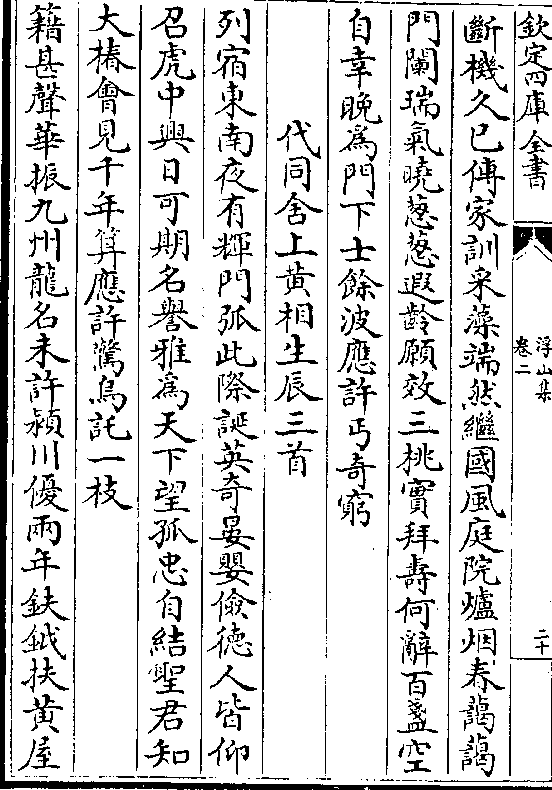 欽定四庫全書
浮山集
卷二
二十
斷機久已傳家訓采藻端然繼國風庭院爐烟春藹藹
門闌瑞氣曉葱葱遐齡願效三桃實拜壽何辭百盞空
自幸晚為門下士餘波應許丐奇窮
代同舍上黄相生辰三首
列宿東南夜有輝門弧此際誕英奇晏嬰儉徳人皆仰
召虎中興日可期名譽雅為天下望孤忠自結聖君知
大椿會見千年算應許驚烏託一枝
籍甚聲華振九州龍名未許潁川優兩年鈇鉞扶黄屋